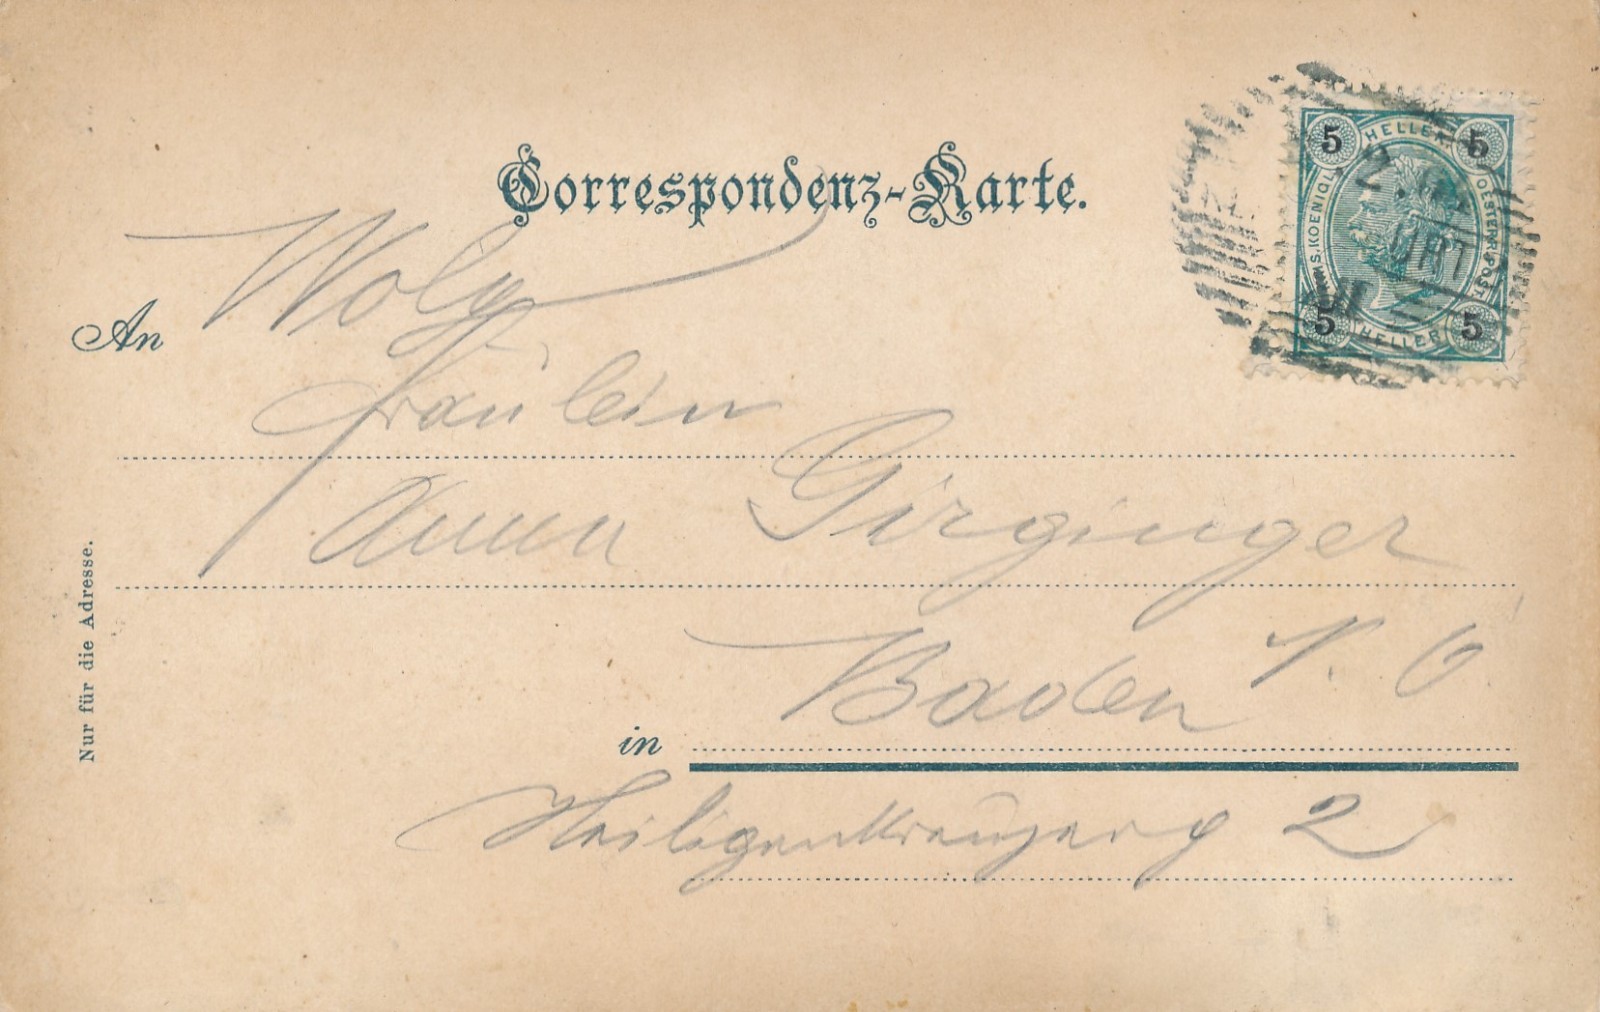 Correspondenz-Karte.
An
Wolg
Fräulein
Anna Girginger
Baden N. Ö.
in
Heiligenkreuzerg 2
Nur für die Adresse.
5 HELLER 5
KAIS. KOENIGL.
OESTERR. POST.
5 HELLER 5